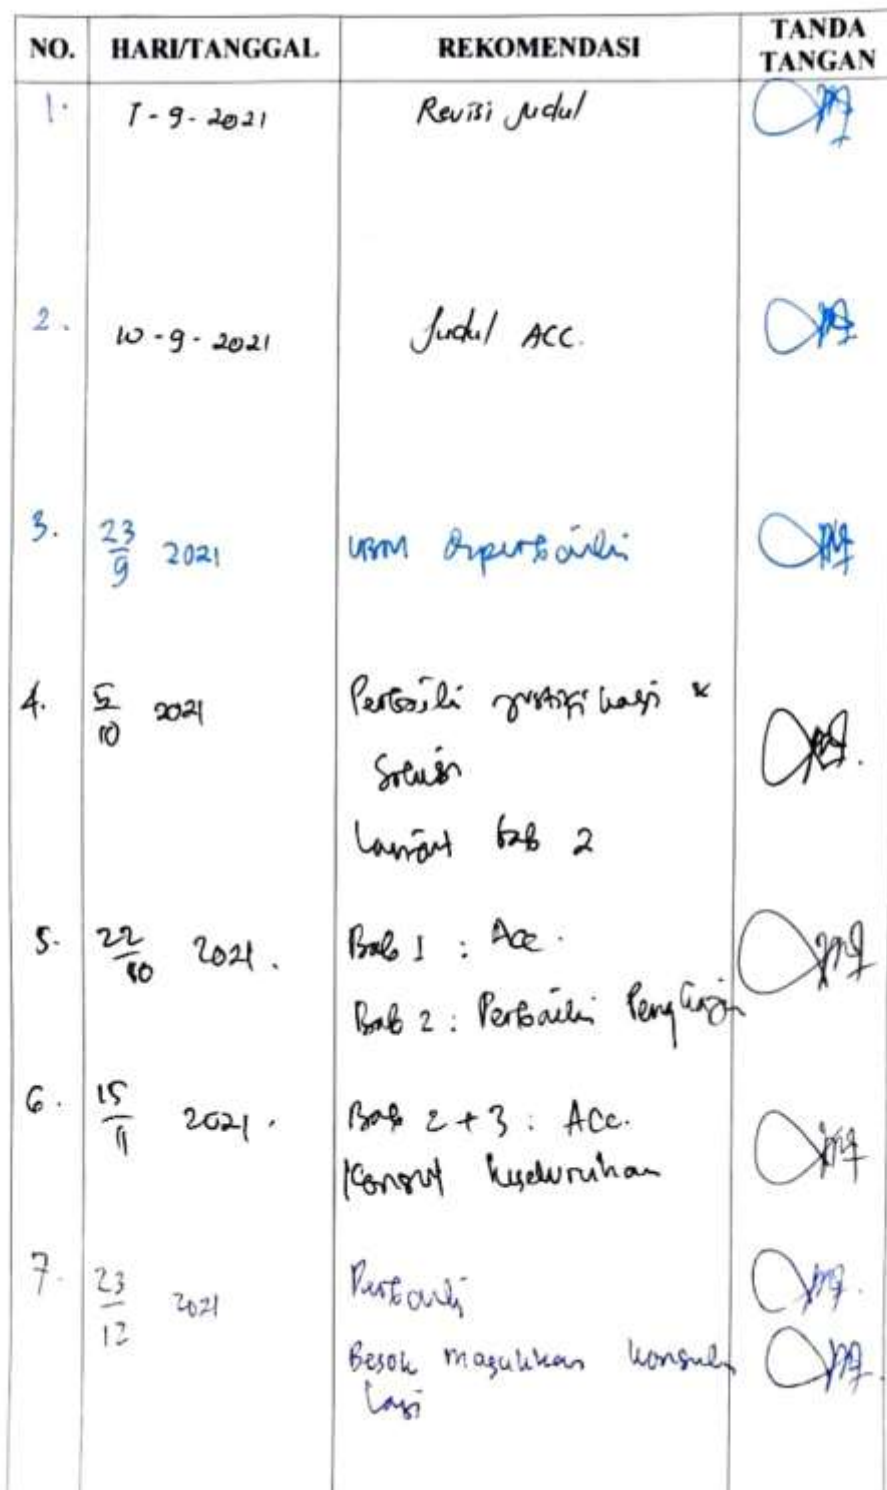 NO. HARI/TANGGAL REKOMENDASI TANDA TANGAN
1. 1-9-2021 Revisi Judul
2. 10-9-2021 Judul ACC.
3. 23/9 2021 diperbaiki
4. 5/10 2021 Perbaiki justifikasi &
Solusi
Lanjut bab 2
5. 22/10 2021. Bab 1 : Acc.
Bab 2 : Perbaiki
6. 15/11 2021. Bab 2 + 3 : ACC.
Konsul keseluruhan
7. 23/12 2021 Perbaiki
Besok masukkan konsul
lagi